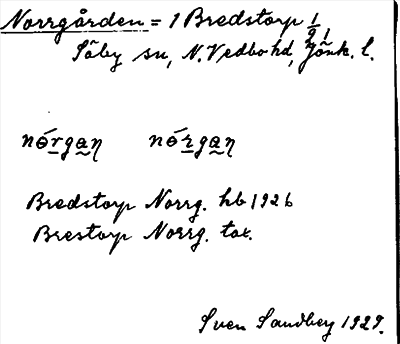 Norrgården = 1 Bredstorp 1/2 1
Säby sn, N. Vedbo hd, Jönk. l.
nórgaŋ nórgaŋ
Bredstorp Norrg. hb 1926
Brestorp Norrg. tax.
Sven Sandberg 1929.